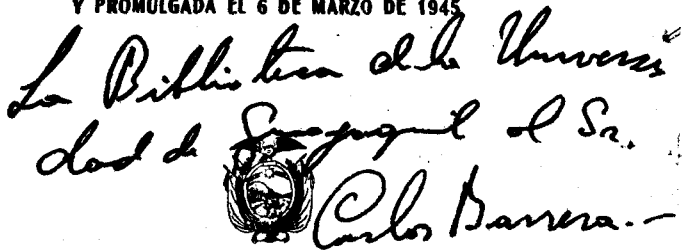 Y PROMULGADA EL 6 DE MARZO DE 1945
La Biblioteca de la Universi
dad de Guayaquil al Sr.
Carlos Barrera.-